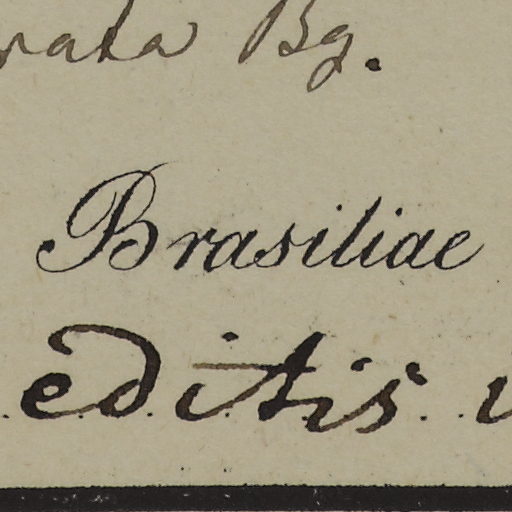 rata Bg.
Brasiliae
editis